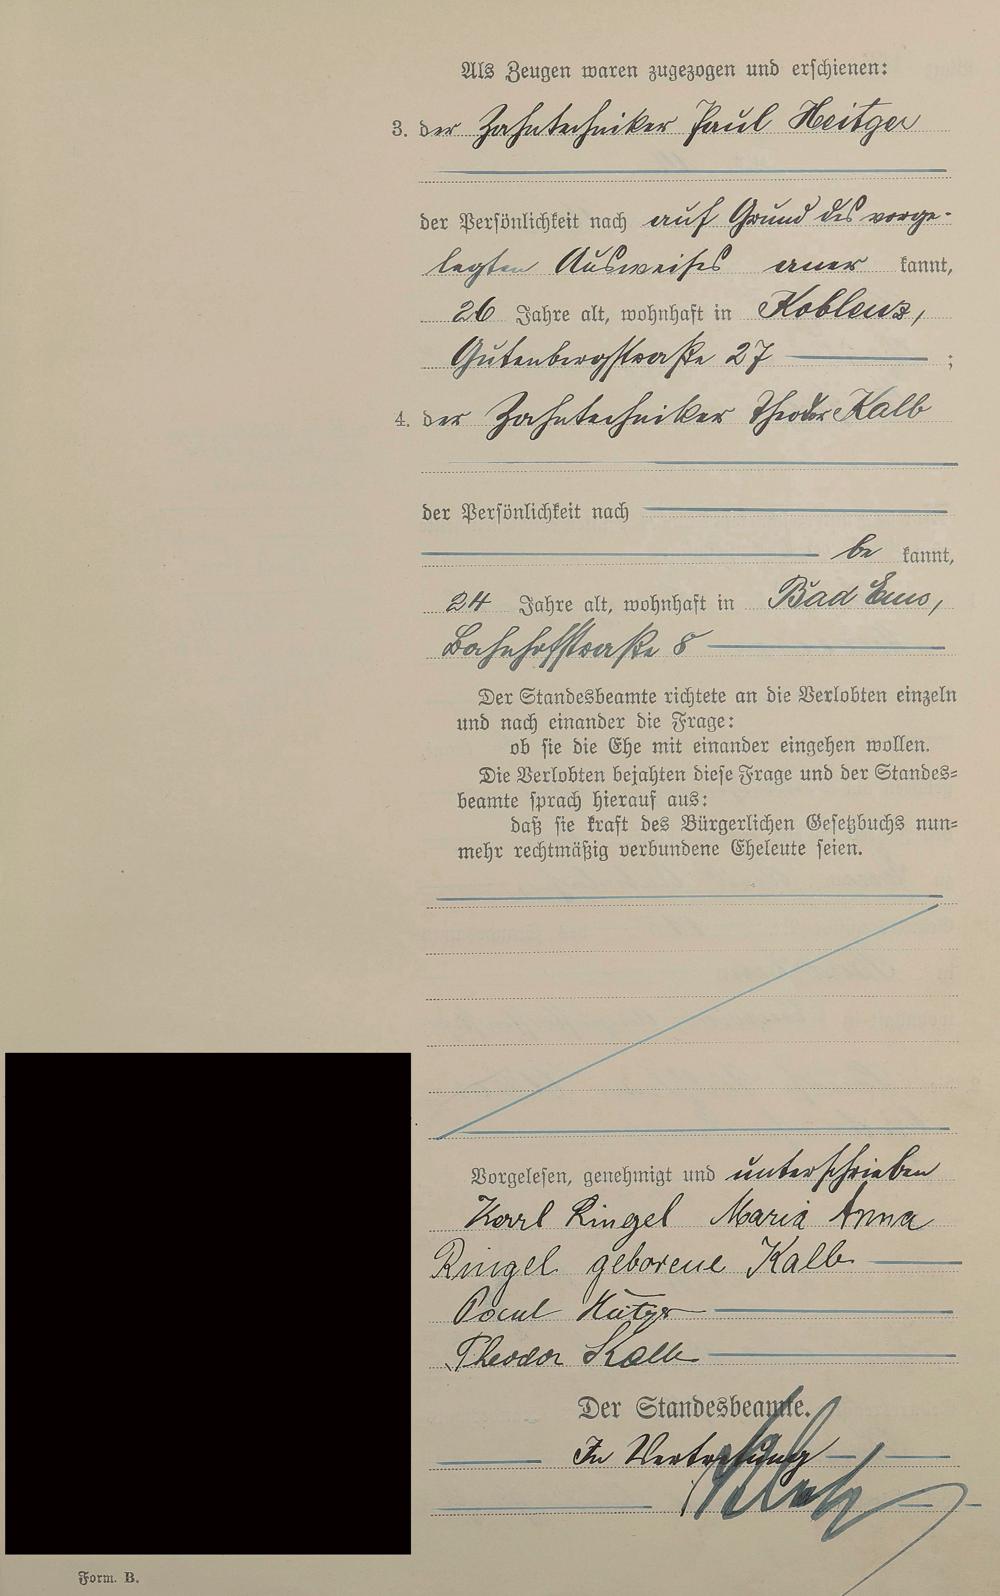 Als Zeugen waren zugezogen und erschienen:
3. der Zahntechniker Paul Heitger
der Persönlichkeit nach auf Grund des vorge-
legten Ausweises aner kannt,
26 Jahre alt, wohnhaft in Koblenz,
Gutenbergstraße 27 ;
4. der Zahntechniker Theodor Kalb
der Persönlichkeit nach
be kannt,
24 Jahre alt, wohnhaft in Bad Ems,
Bahnhofstraße 8
Der Standesbeamte richtete an die Verlobten einzeln
und nach einander die Frage:
ob sie die Ehe mit einander eingehen wollen.
Die Verlobten bejahten diese Frage und der Standes-
beamte sprach hierauf aus:
daß sie kraft des Bürgerlichen Gesetzbuchs nun-
mehr rechtmäßig verbundene Eheleute seien.
Vorgelesen, genehmigt und unterschrieben
Karl Ringel Maria Anna
Ringel geborene Kalb
Paul
Theodor Kalb
Der Standesbeamte.
In Vertretung
Form. B.